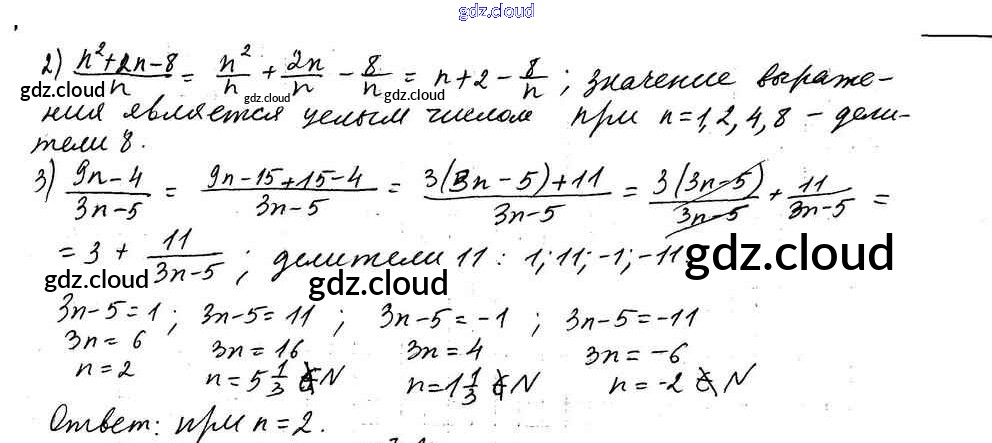 gdz.cloud
2) (n²+2n-8)/n = n²/n + 2n/n - 8/n = n+2-8/n; значение выраже-
gdz.cloud gdz.cloud gdz.cloud
ния является целым числом при n=1,2,4,8 - дели-
тели 8.
3) (9n-4)/(3n-5) = (9n-15+15-4)/(3n-5) = (3(3n-5)+11)/(3n-5) = 3(3n-5)/(3n-5) + 11/(3n-5) =
= 3 + 11/(3n-5); делители 11: 1; 11; -1; -11.
gdz.cloud gdz.cloud gdz.cloud
3n-5=1; 3n-5=11; 3n-5=-1; 3n-5=-11
3n=6 3n=16 3n=4 3n=-6
n=2 n=5 1/3 ∉ N n=1 1/3 ∉ N n=-2 ∉ N
Ответ: при n=2.